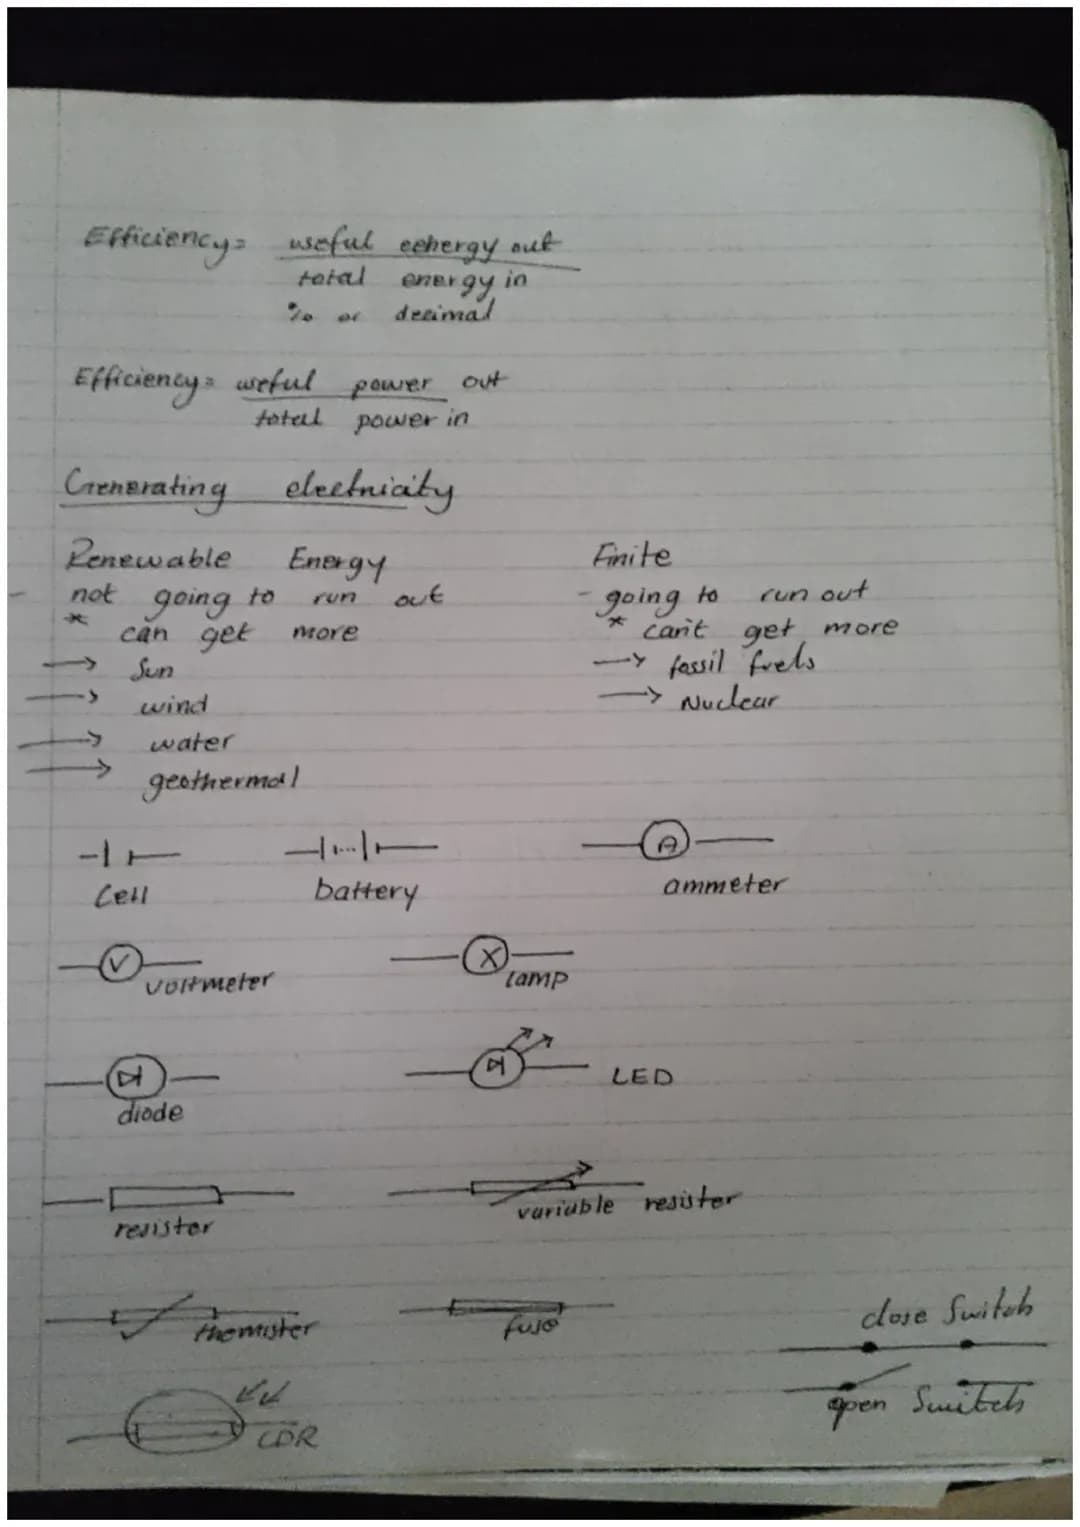 Efficiency = useful eehergy out
total energy in
% or decimal
Efficiency = useful power out
total power in
Generating electricity
Renewable Energy
- not going to run out
* can get more
→ Sun
→ wind
→ water
→ geothermal
Finite
- going to run out
* can't get more
→ fossil fuels
→ Nuclear
Cell
battery
A
ammeter
V
voltmeter
X
lamp
diode
LED
resister
variable resister
themister
fuse
close Switch
open Switch
LDR